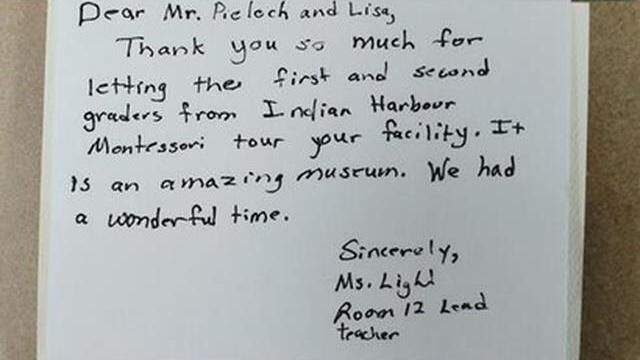 Dear Mr. Pieloch and Lisa,
Thank you so much for
letting the first and second
graders from Indian Harbour
Montessori tour your facility. It
is an amazing museum. We had
a wonderful time.
Sincerely,
Ms. Light
Room 12 Lead
teacher